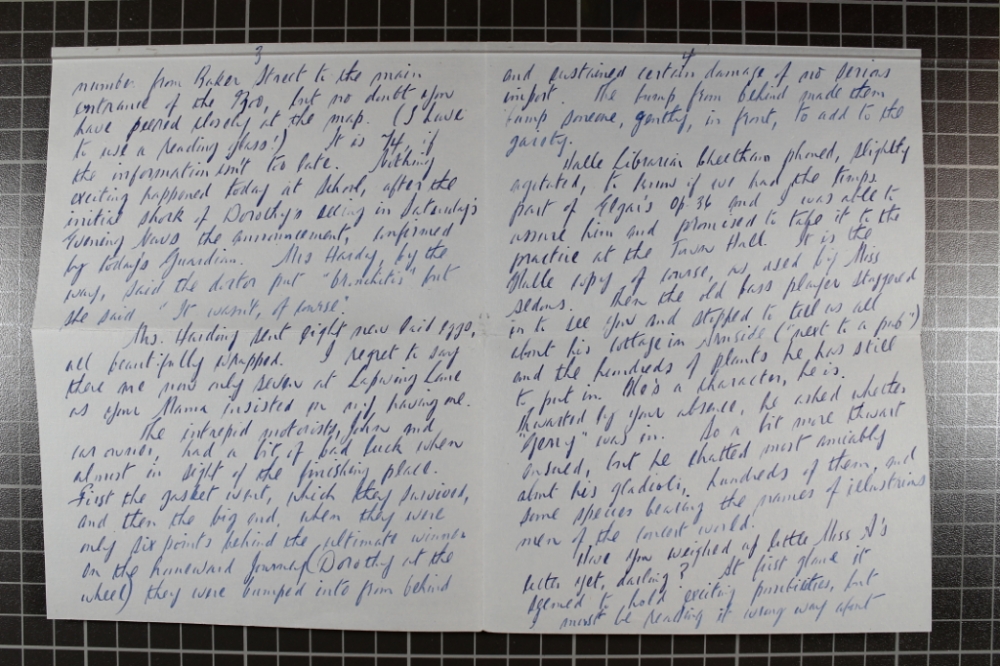 3
number from Baker Street to the main
entrance of the Zoo, but no doubt you
have peered closely at the map. (I have
to use a reading glass!) It is 74, if
the information isn't too late. Nothing
exciting happened today at School, after the
initial shock of Dorothy's seeing in Saturday's
Evening News the announcement, confirmed
by today's Guardian. Mrs Hardy, by the
way, said the doctor put "bronchitis" but
she said "It wasn't, of course".
Mrs. Harding sent eight new laid eggs,
all beautifully wrapped. I regret to say
there are now only seven at Lapwing Lane
as your Mama insisted on my having one.
The intrepid motorists, John and
car owner, had a bit of bad luck when
almost in sight of the finishing place.
First the gasket went, which they survived,
and then the big end, when they were
only six points behind the ultimate winner
On the homeward journey (Dorothy at the
wheel) they were bumped into from behind
4
and sustained certain damage of no serious
import. The bump from behind made them
bump someone, gently, in front, to add to the
gaiety.
Halle Librarian Cheetham phoned, slightly
agitated, to know if we had the timps
part of Elgar's Op. 36 and I was able to
assure him and promised to take it to the
practice at the Town Hall. It is the
Halle copy of course, as used by Miss
sedans. Then the old bass player staggered
in to see you and stopped to tell us all
about his cottage in Arnside ("next to a pub")
and the hundreds of plants he has still
to put in. He's a character, he is.
Thwarted by your absence, he asked whether
"Gerry" was in. So a bit more thwart
ensued, but he chatted most amiably
about his gladioli, hundreds of them, and
some species bearing the names of illustrious
men of the concert world.
Have you weighed up little Miss A's
letter yet, darling? At first glance it
seemed to hold exciting possibilities, but
I must be reading it wrong way about